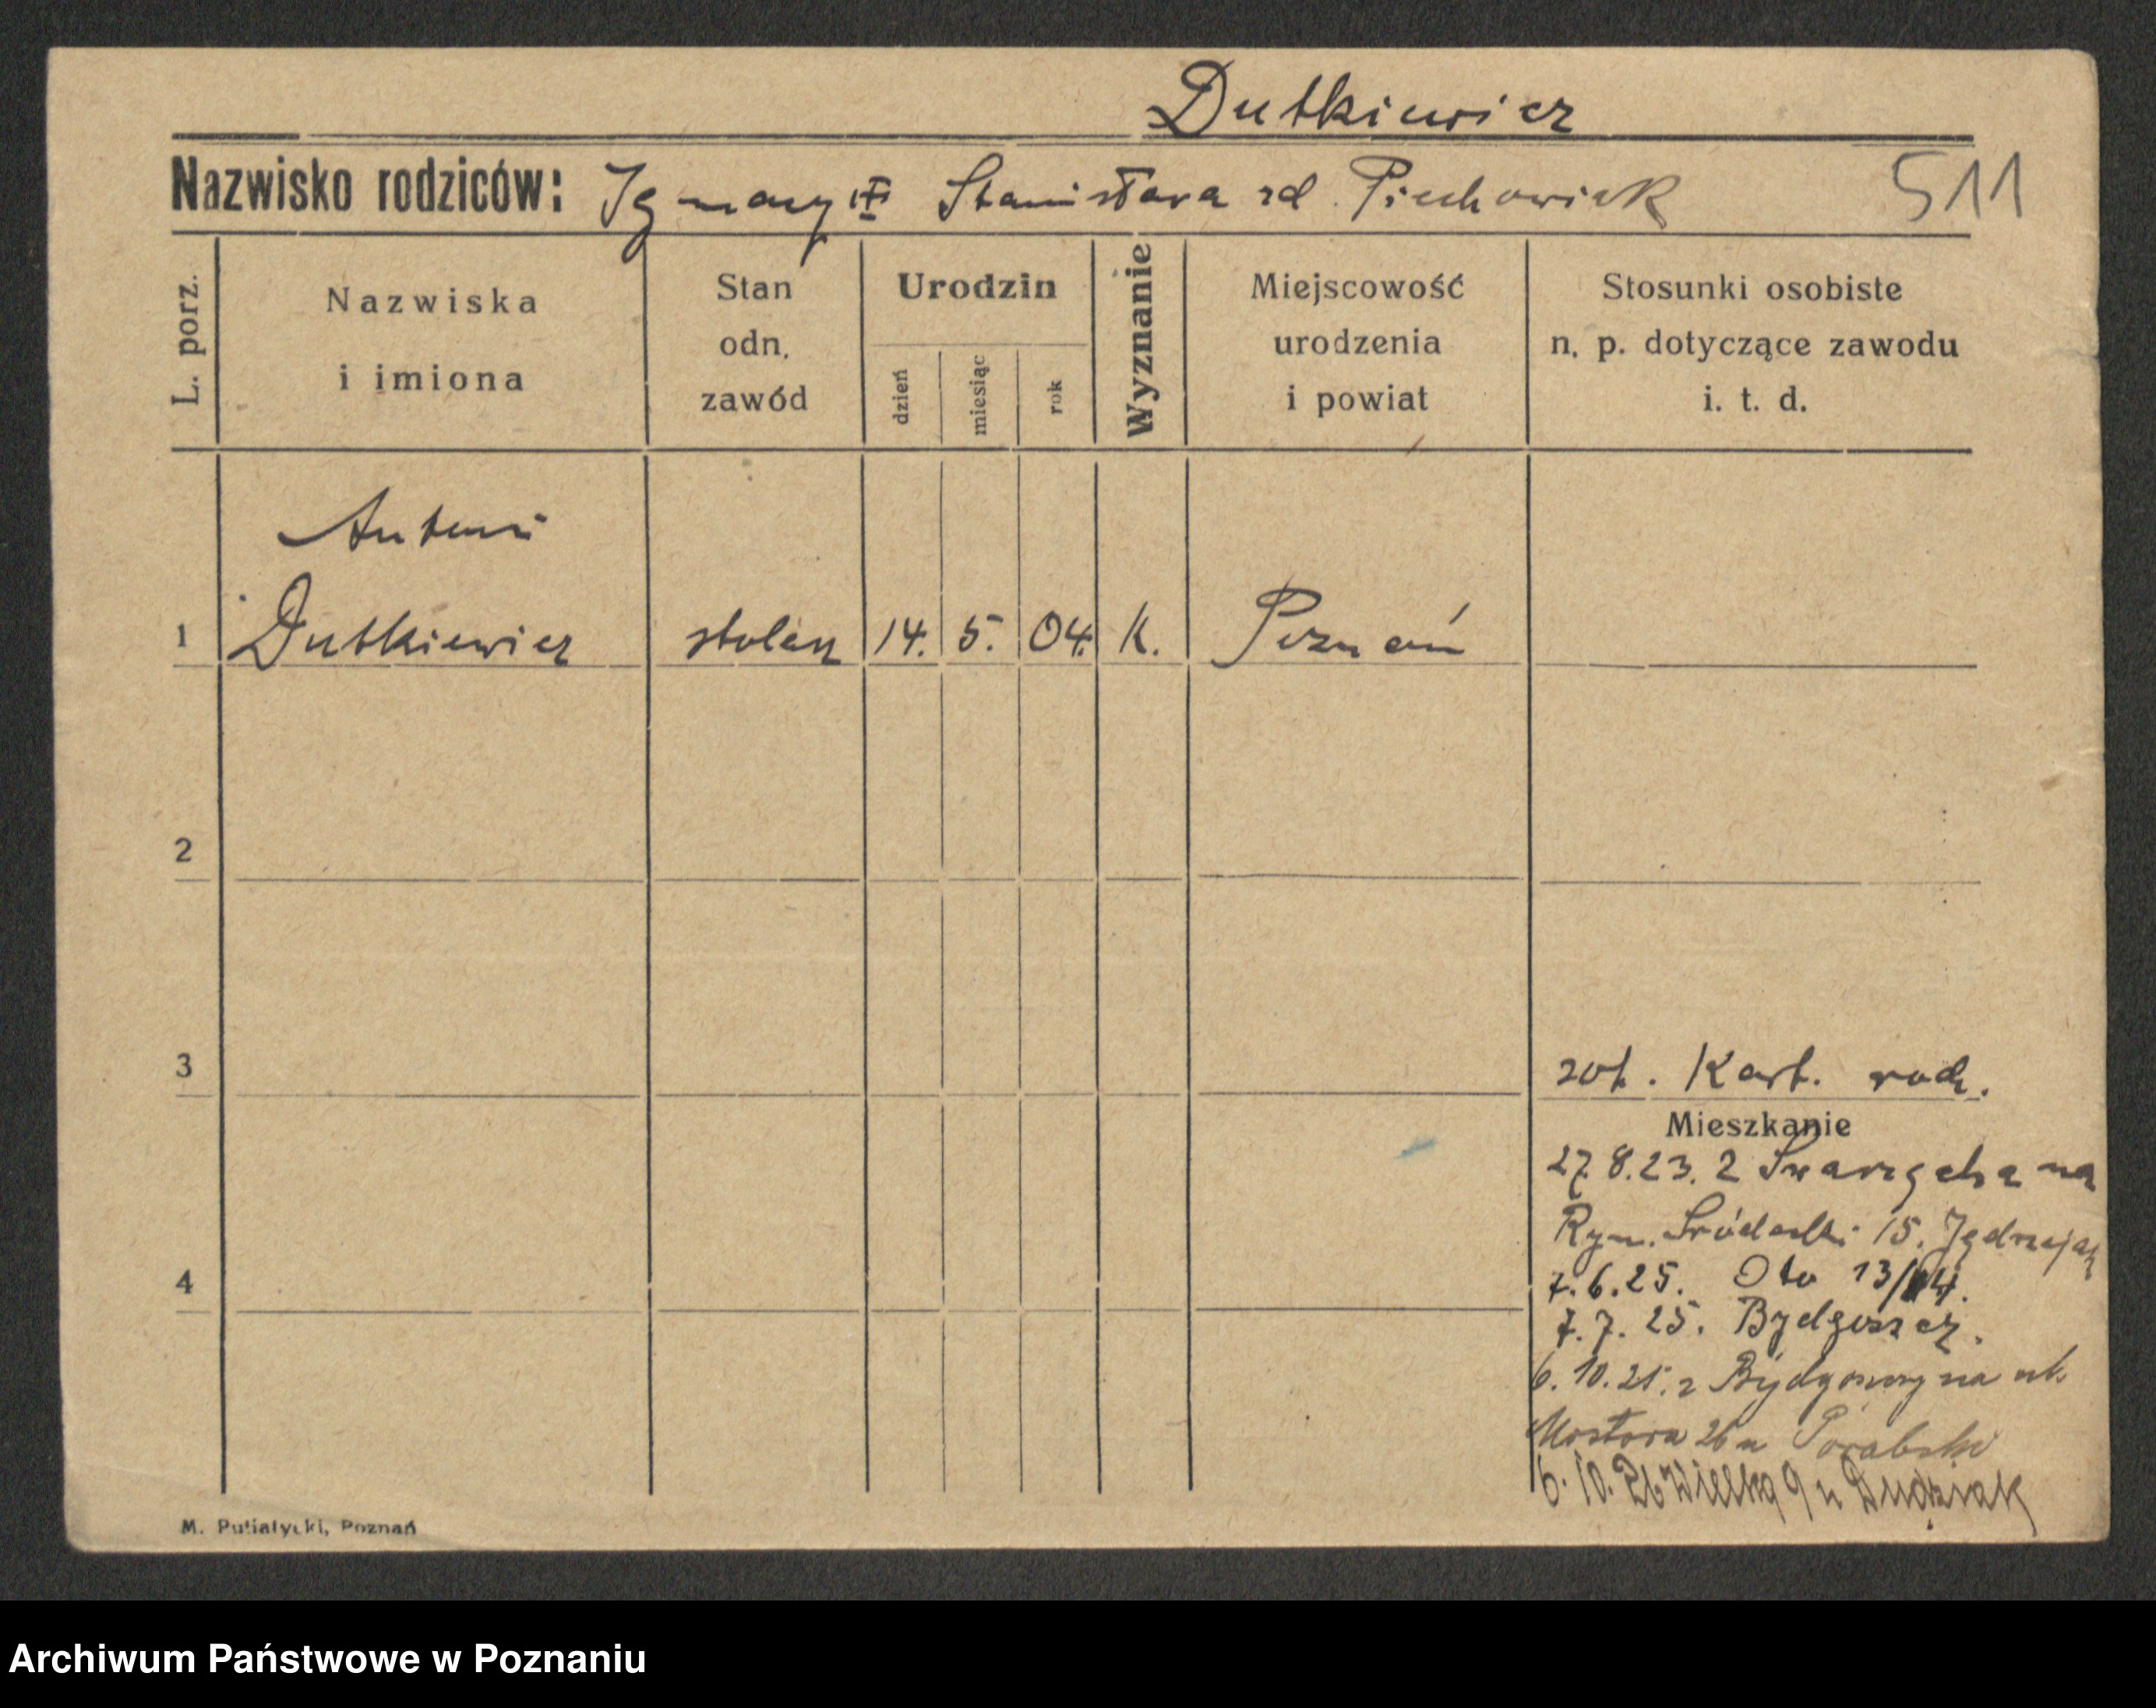 Dutkiewicz
Nazwisko rodziców: Ignacy i Stanisława zd. Piechowiak 511
L. porz.
Nazwiska i imiona
Stan odn. zawód
Urodzin
dzień
miesiąc
rok
Wyznanie
Miejscowość urodzenia i powiat
Stosunki osobiste n. p. dotyczące zawodu i. t. d.
Antoni
1 Dutkiewicz stolarz 14. 5. 04. K. Poznań
2
3 zob. Kart. rodz.
Mieszkanie
27.8.23. z Swarzędza na
Ryn. Śródecki 15. Jędrzejak
4
7.6.25. Oto 13/14.
7.7.25. Bydgoszcz.
6.10.25. z Bydgoszczy na ul.
Mostowa 26 u Porabski
6.10.26 Wielka 9 u Dudziak
M. Putiatycki, Poznań
Archiwum Państwowe w Poznaniu